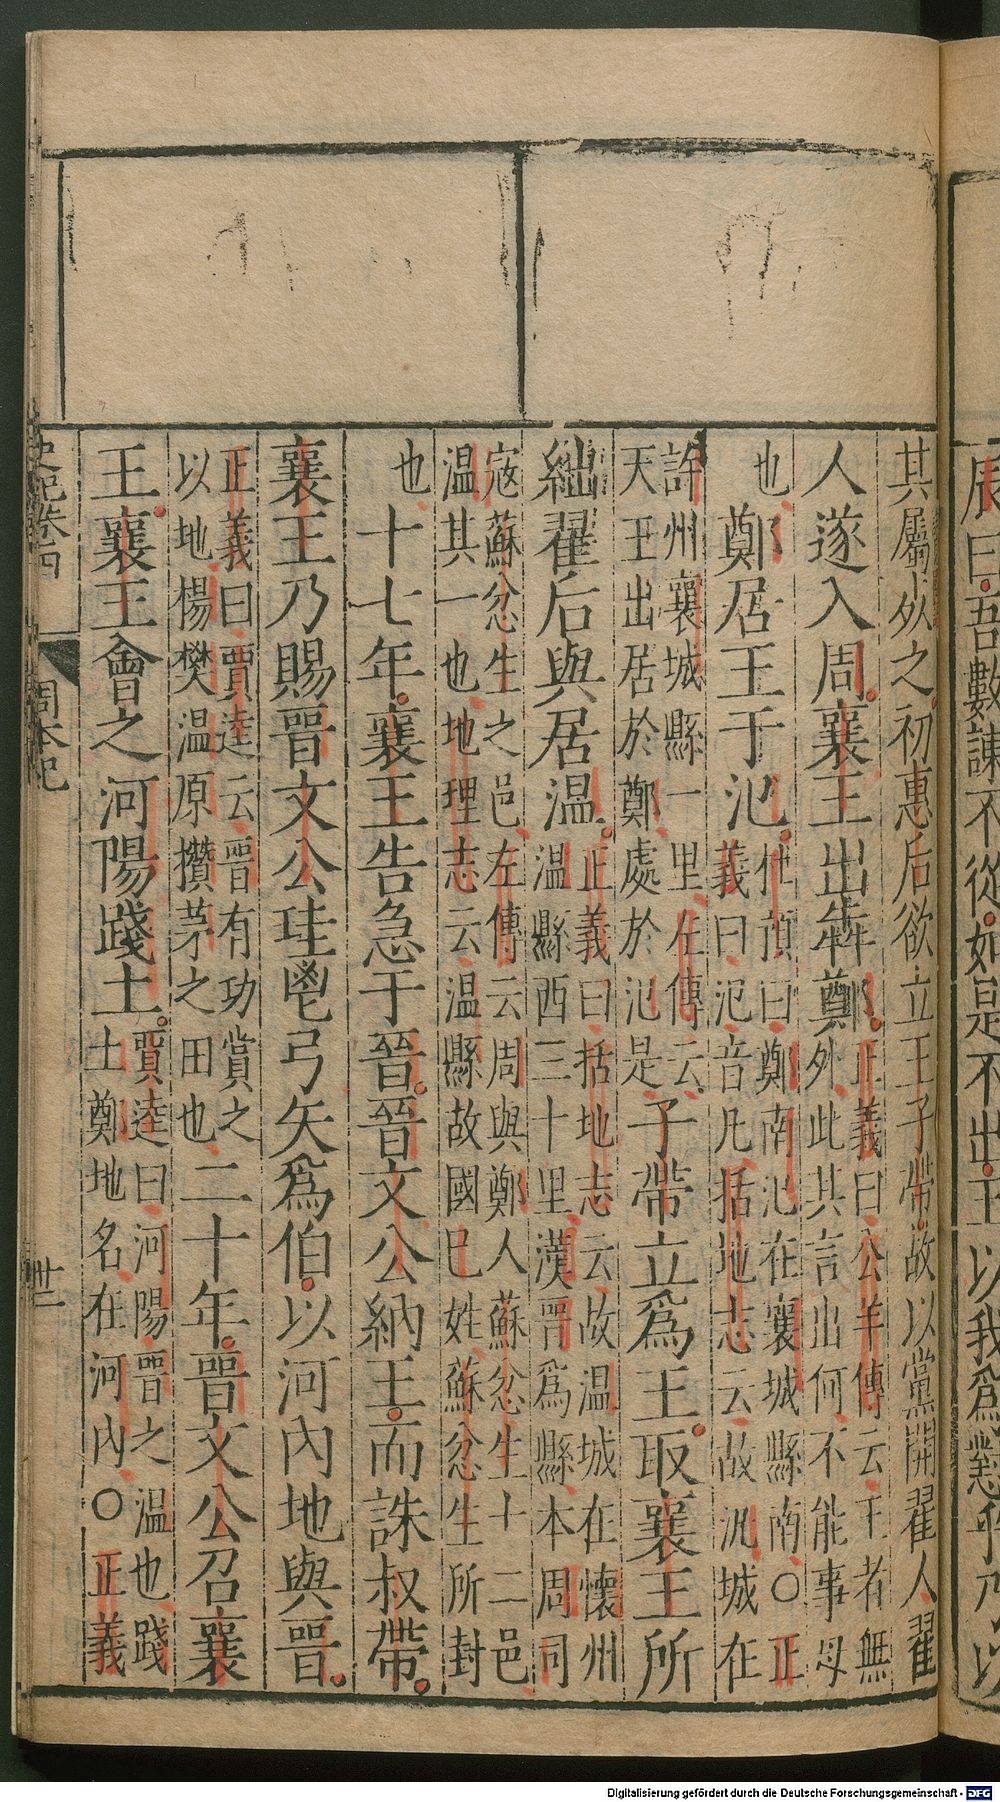 辰曰吾數諫不從如是不出王以我爲懟乎乃以
其屬死之初惠后欲立王子帶故以黨開翟人翟
人遂入周襄王出犇鄭
正義曰公羊傳云王者無
外此其言出何不能事母
也
鄭居王于氾
杜預曰鄭南氾在襄城縣南○正
義曰氾音凡括地志云故汎城在
許州襄城縣一里左傳云
天王出居於鄭處於氾是
子帶立爲王取襄王所
絀翟后與居温
正義曰括地志云故温城在懷州
温縣西三十里漢晉爲縣本周司
寇蘇忿生之邑左傳云周與鄭人蘇忿生十二邑
温其一也地理志云温縣故國已姓蘇忿生所封
也
十七年襄王告急于晉晉文公納王而誅叔帶
襄王乃賜晉文公珪鬯弓矢爲伯以河內地與晉
正義曰賈逵云晉有功賞之
以地楊樊温原攢茅之田也
二十年晉文公召襄
王襄王會之河陽踐土
賈逵曰河陽晉之温也踐
土鄭地名在河內○正義
史記卷四
周本紀
Digitalisierung gefördert durch die Deutsche Forschungsgemeinschaft - DFG